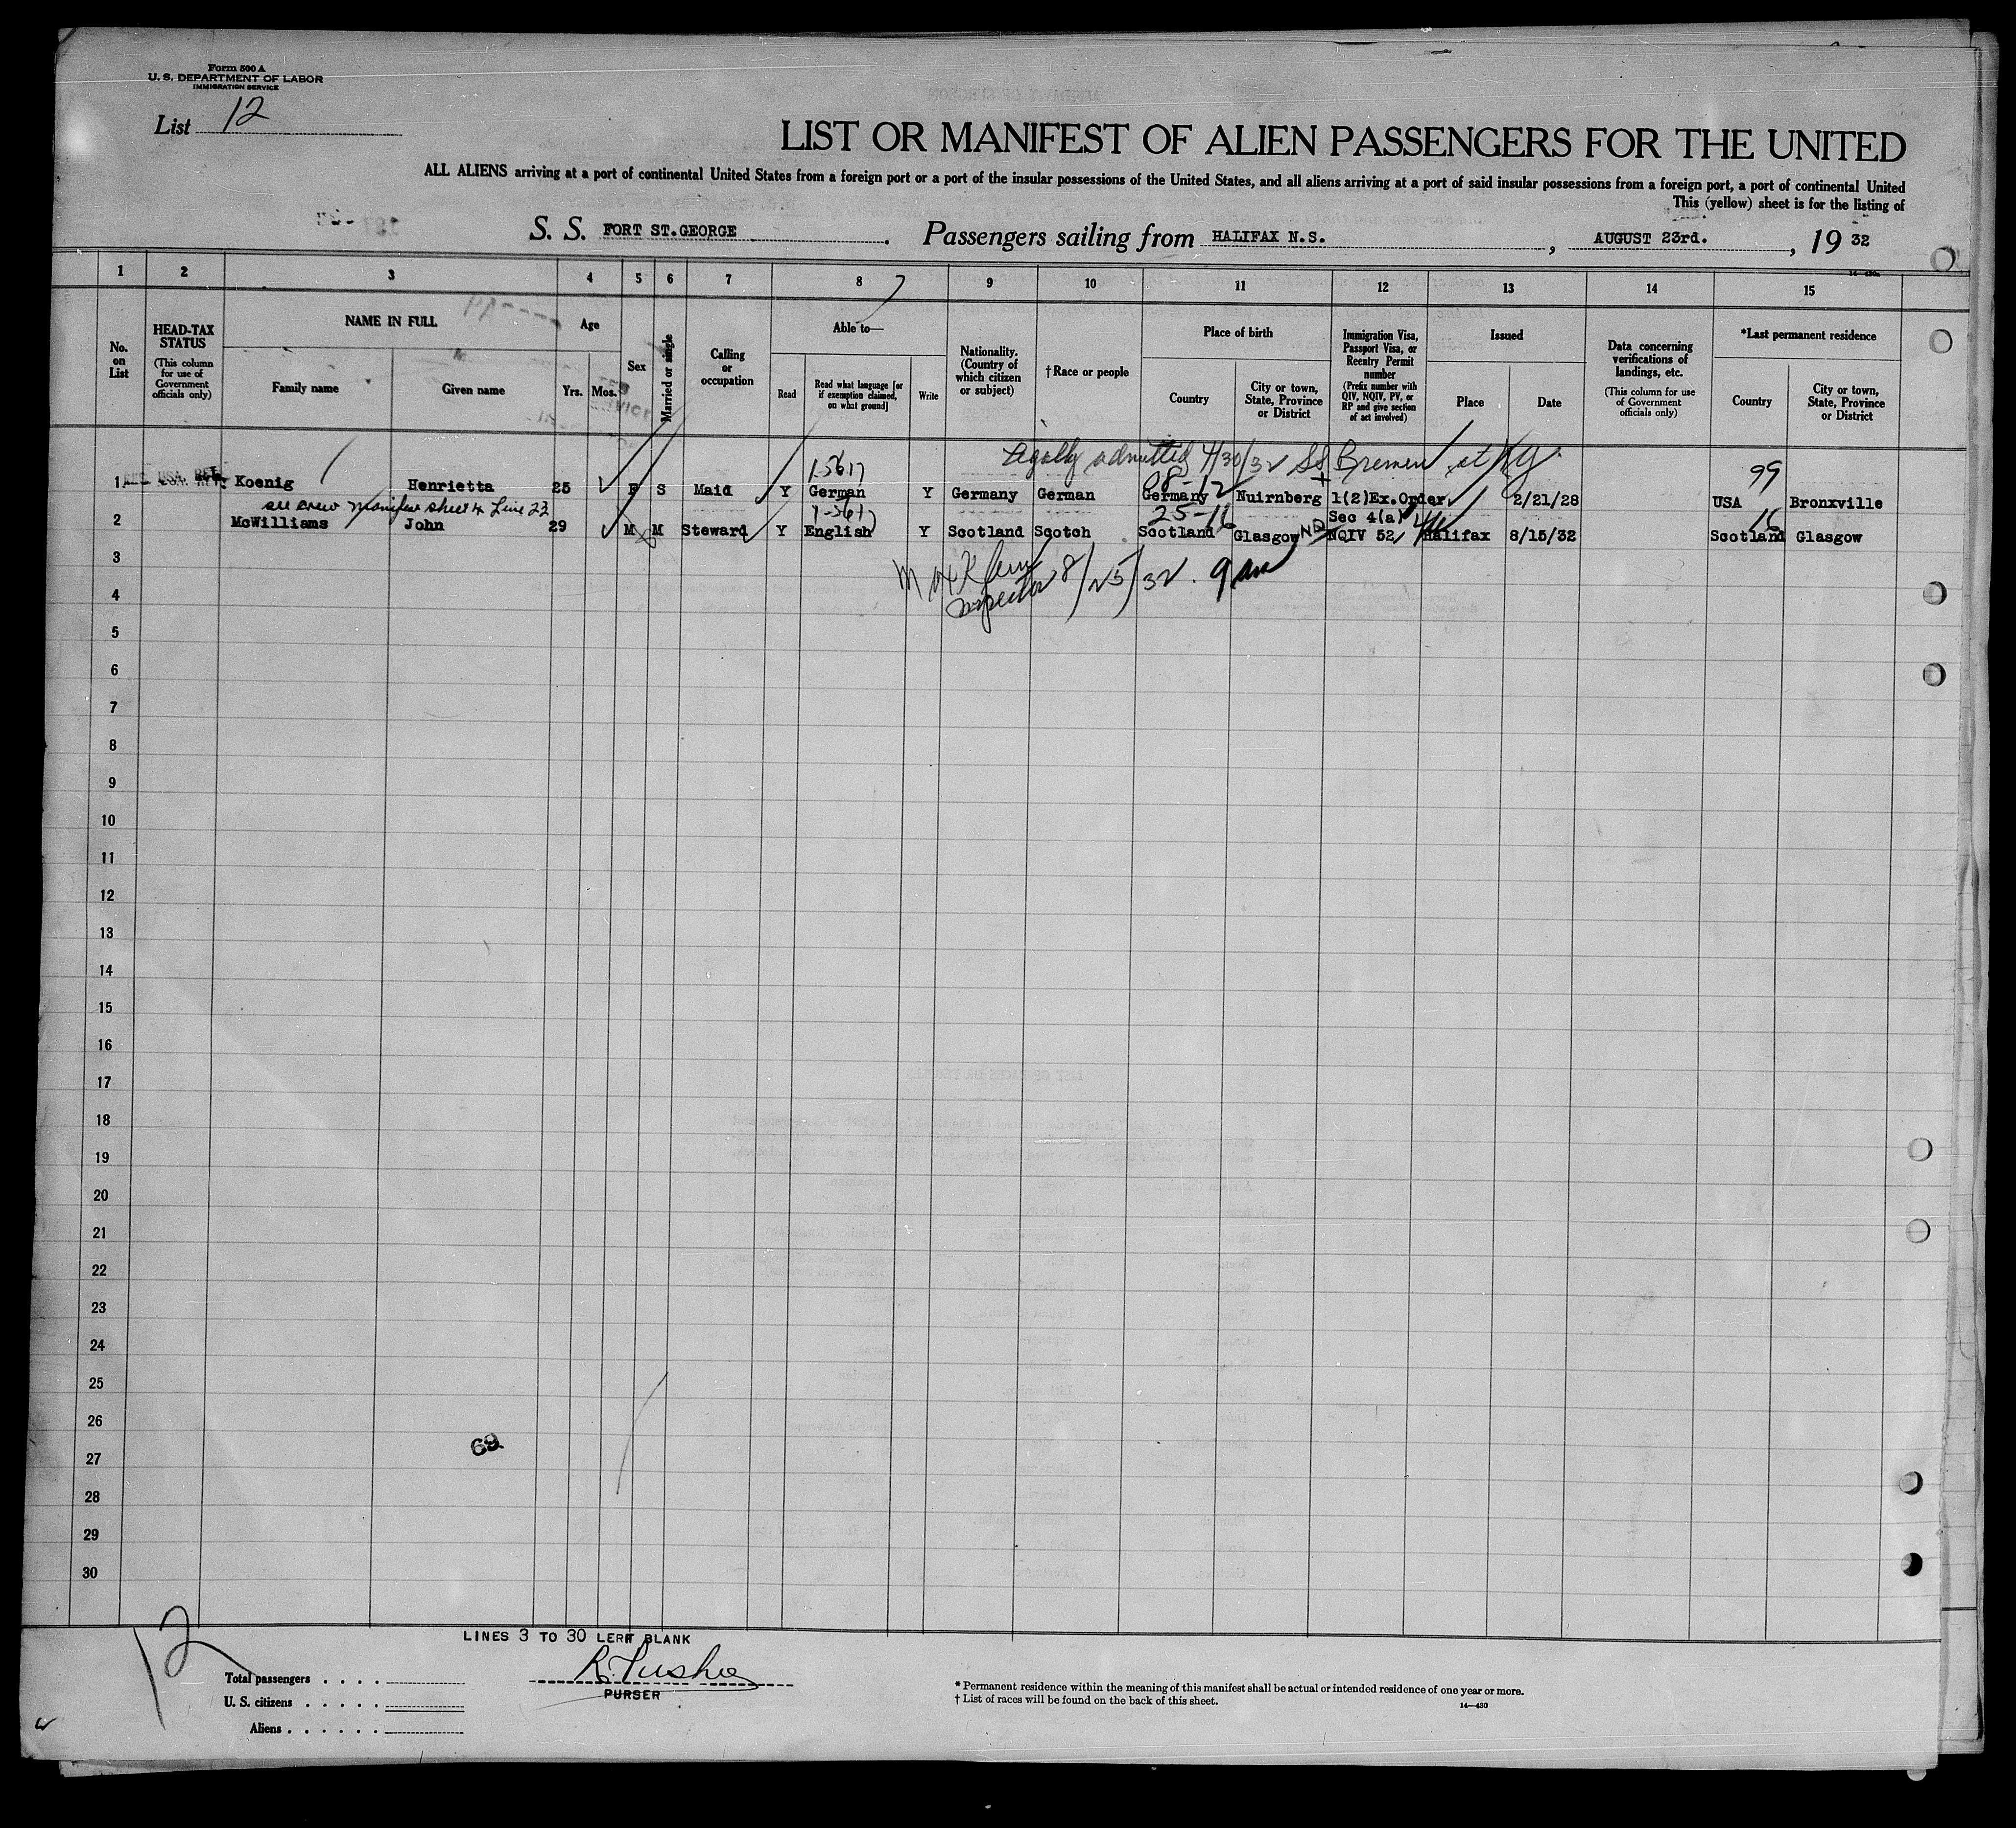 Form 500 A
U. S. DEPARTMENT OF LABOR
IMMIGRATION SERVICE
List 12
LIST OR MANIFEST OF ALIEN PASSENGERS FOR THE UNITED
ALL ALIENS arriving at a port of continental United States from a foreign port or a port of the insular possessions of the United States, and all aliens arriving at a port of said insular possessions from a foreign port, a port of continental United
This (yellow) sheet is for the listing of
S. S. FORT ST.GEORGE . Passengers sailing from HALIFAX N.S. , AUGUST 23rd. , 19 32
1 2 3 4 5 6 7 8 9 10 11 12 13 14 15
No. on List
HEAD-TAX STATUS
(This column for use of Government officials only)
NAME IN FULL
Family name
Given name
Age
Yrs. Mos.
Sex
Married or single
Calling or occupation
Able to—
Read
Read what language [or if exemption claimed, on what ground]
Write
Nationality. (Country of which citizen or subject)
†Race or people
Place of birth
Country
City or town, State, Province or District
Immigration Visa, Passport Visa, or Reentry Permit number
(Prefix number with QIV, NQIV, PV, or RP and give section of act involved)
Issued
Place
Date
Data concerning verifications of landings, etc.
(This column for use of Government officials only)
*Last permanent residence
Country
City or town, State, Province or District
legally admitted 4/30/32 SS Bremen at NY
08-12 99
1 Koenig Henrietta 25 F S Maid Y German Y Germany German Germany Nuirnberg 1(2)Ex.Order 2/21/28 USA Bronxville
see crew manifest sheet 4 Line 22
25-16 Sec 4(a) 16
2 McWilliams John 29 M M Steward Y English Y Scotland Scotch Scotland Glasgow NQIV 52 Halifax 8/15/32 Scotland Glasgow
Inspector 8/25/32. 9 am
3
4
5
6
7
8
9
10
11
12
13
14
15
16
17
18
19
20
21
22
23
24
25
26
69
27
28
29
30
LINES 3 TO 30 LEFT BLANK
12
Total passengers . . . .
U. S. citizens . . . . .
Aliens . . . . . .
PURSER
* Permanent residence within the meaning of this manifest shall be actual or intended residence of one year or more.
† List of races will be found on the back of this sheet.
14—430